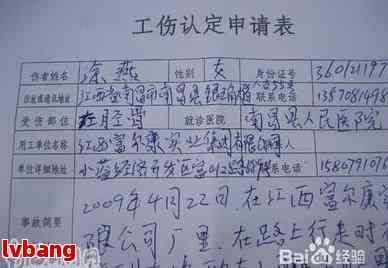 工伤认定申请表
伤者姓名 涂燕 性别 女 身份证号 360121197
住址或通讯地址 江西省南昌市南昌县 联系电话 1357081498
受伤部位 左胫骨 就诊医院 南昌县人民医院
用工单位名称 江西富尔康实业集团有限公司
单位详细地址 小蓝经济开发区富山 路 联系电话 1580791016
事故简要 2009年4月22日，在江西富尔康实
限公司厂里，在路上行走时
lvbang
Bai 百度经验